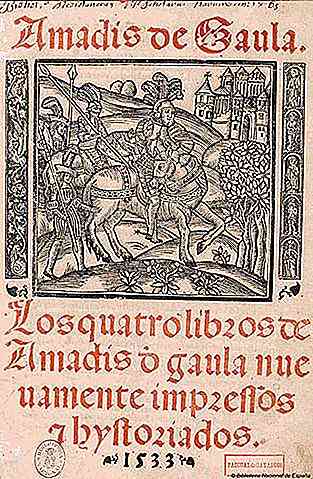 Amadis de Gaula.
Los quatro libros de
Amadis ð gaula nue
uamente impressos
⁊ hystoriados.
1533
PASCUAL DE GAYANGOS
© Biblioteca Nacional de España